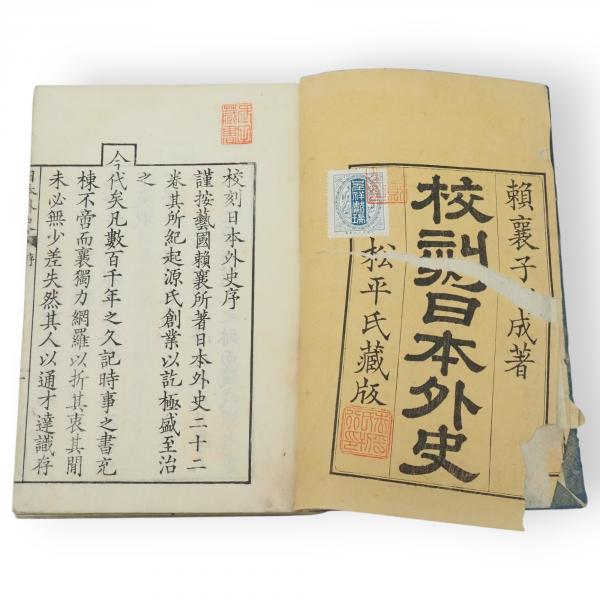 賴襄子成著
校刻日本外史
松平氏藏版
校刻日本外史序
謹按藝國賴襄所著日本外史二十二
卷其所紀起源氏創業以訖極盛至治
之
今代矣凡數百千年之久記時事之書充
棟不啻而襄獨力網羅以折其衷其間
未必無少差失然其人以通才達識存
日本外史
序